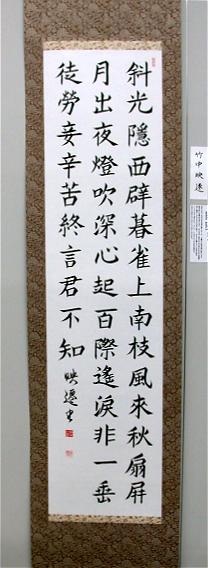 斜光隱西辟暮雀上南枝風來秋扇屏
月出夜燈吹深心起百際遙淚非一垂
徒勞妾辛苦終言君不知 映遷
竹中映遷